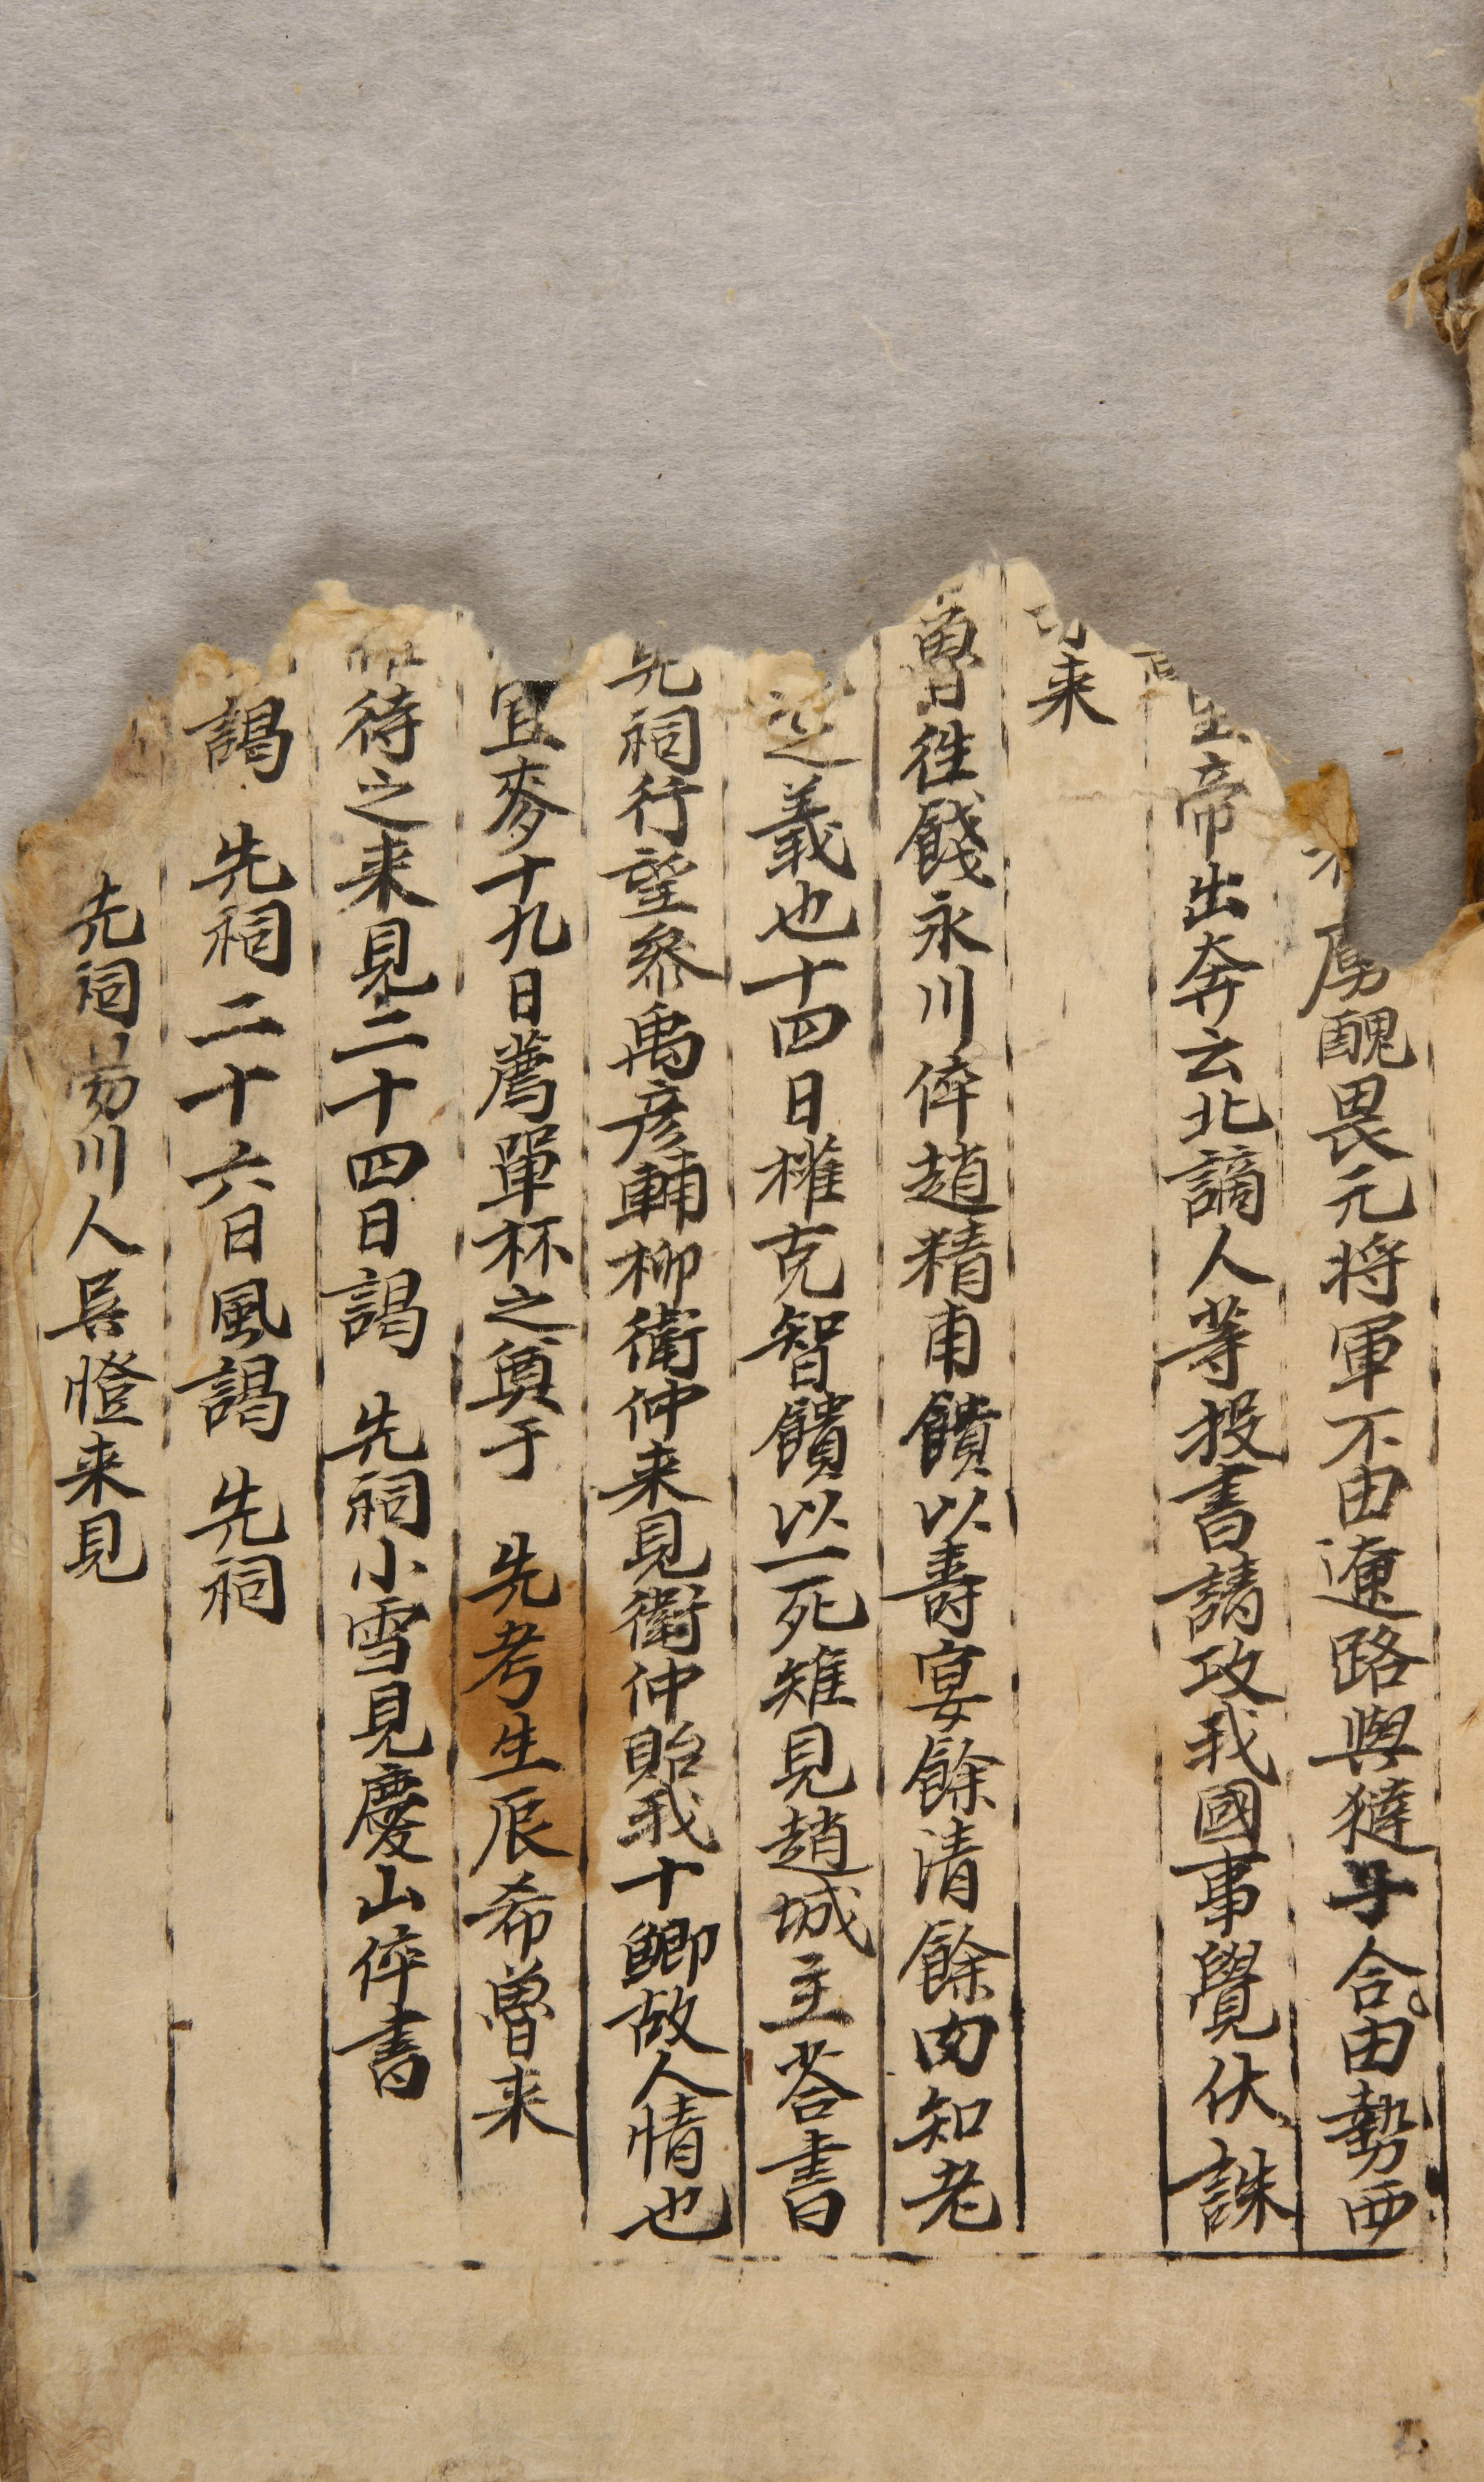 虜醜畏元将軍不由遼路與㺚子合由勢西
皇帝出奔云北謫人等投書請攻我國事覺伏誅
来
魯徃餞永川倅趙精甫饋以壽宴餘清餘肉知老
之義也十四日權克智饋以一死雉見趙城主答書
先祠行望叅禹彦輔柳衛仲来見衛仲貽我十鯽故人情也
且麥十九日薦單杯之奠于 先考生辰希魯来
待之来見二十四日謁 先祠小雪見慶山倅書
謁 先祠二十六日風謁 先祠
先祠 川人吴憕来見